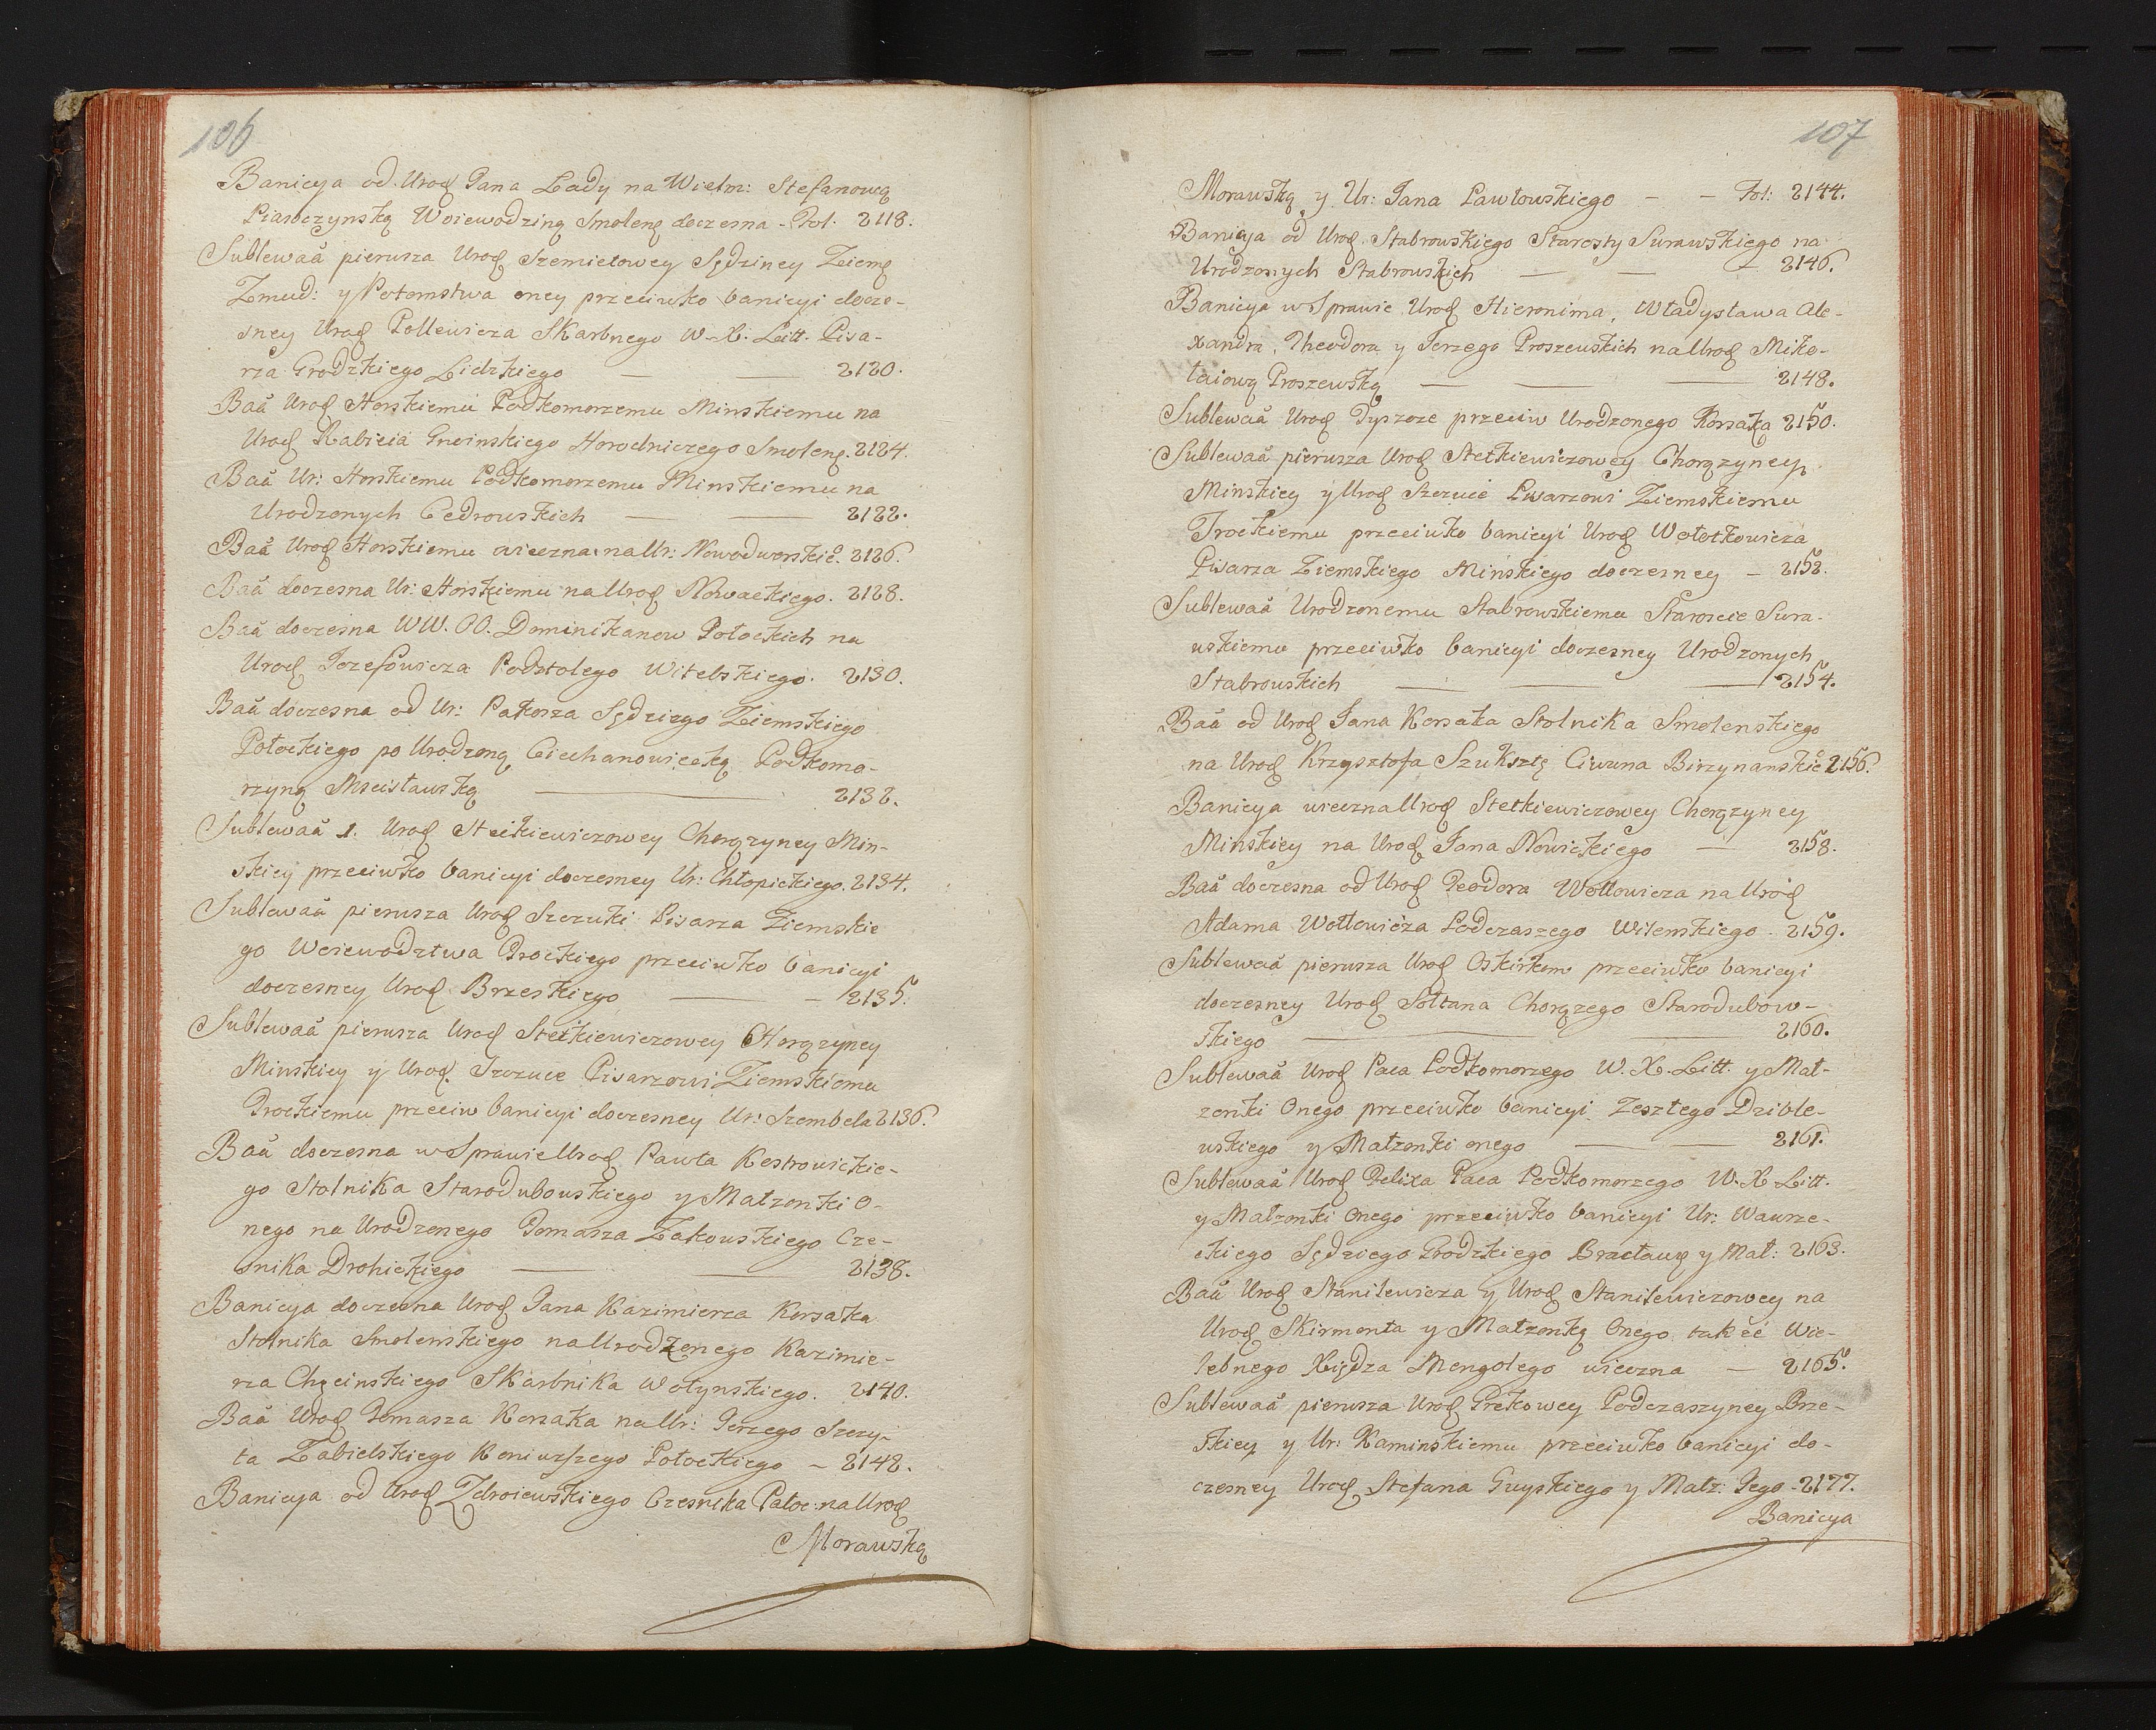 106
Banicya od Urod Jana Lady na Wielm: Stefanową
Piaseczynską Woiewodziną Smolens doczesna - Fol. 2118.
Sublewaã pierwsza Urod Szemietowey Sędziney Ziems
Zmud: y Potomstwa oney przeciwko banicyi docze-
sney Urod Pollewicza Skarbnego W. X. Litt. Pisa-
rza Grodzkiego Lidzkiego — — 2120.
Baã Urod Horskiemu Podkomorzemu Minskiemu na
Urod Horodniczego Smolens. 2124.
Baã Ur: Horskiemu Podkomorzemu Minskiemu na
Urodzonych Cedrowskich — — 2122.
Baã Urod Horskiemu wieczna na Ur: Nowodworskie. 2126.
Baã doczesna Ur: Horskiemu na Urod Nowackiego. 2128.
Baã doczesna WW. OO. Dominikanow Połockich na
Urod Jozefowicza Podstolego Witebskiego. 2130.
Baã doczesna od Ur: Pakosza Sędziego Ziemskiego
Połockiego po Urodzoną Ciechanowiecką Podkomo-
rzyną Mscisławską — 2132.
Sublewaã 1. Urod Stetkiewiczowey Chorązyney Min-
skiey przeciwko banicyi doczesney Ur: Chłopickiego. 2134.
Sublewaã pierwsza Urod Szczuki Pisarza Ziemskie
go Woiewodztwa Trockiego przeciwko banicyi
doczesney Urod Brzeskiego — — 2135.
Sublewaã pierwsza Urod Stetkiewiczowey Chorązyney
Minskiey y Urod Szczuce Pisarzowi Ziemskiemu
Trockiemu przeciw banicyi doczesney Ur: Szembela 2136.
Baã doczesna w Sprawie Urod Pawła Kostrowickie-
go Stolnika Starodubowskiego y Małzonki O-
nego na Urodzonego Tomasza Zakowskiego Cze-
snika Drohickiego — — 2138.
Banicya doczesna Urod Jana Kazimierza Korsaka
Stolnika Smolenskiego na Urodzonego Kazimie-
rza Chęcinskiego Skarbnika Wołynskiego. 2140.
Baã Urod Tomasza Korsaka na Ur: Jerzego Szczy-
ta Zabielskiego Koniuszego Połockiego — 2142.
Banicya od Urod Zdroiewskiego Czesnika Połoc: na Urod
Morawską
107
Morawską y Ur: Jana Pawłowskiego — — Fol: 2144.
Banicya od Urod. Stabrowskiego Starosty Surawskiego na
Urodzonych Stabrowskich — — — 2146.
Banicya w Sprawie Urod Hieronima, Władysława Ale-
xandra, Theodora y Jerzego Proszewskich na Urod Miko-
łaiową Proszewską — — — 2148.
Sublewaã Urod Dyszoze przeciw Urodzonego Korsaka 2150.
Sublewaã pierwsza Urod Stetkiewiczowey Chorązyney
Minskiey y Urod Szczuce Pisarzowi Ziemskiemu
Trockiemu przeciwko banicyi Urod Wołotkowicza
Pisarza Ziemskiego Minskiego doczesney — 2152.
Sublewaã Urodzonemu Stabrowskiemu Staroscie Sura-
wskiemu przeciwko banicyi doczesney Urodzonych
Stabrowskich — — — 2154.
Baã od Urod Jana Korsaka Stolnika Smolenskiego
na Urod Krzysztofa Szuksztę Ciwuna Birzynanskie 2156.
Banicya wieczna Urod Stetkiewiczowey Chorązyney
Minskiey na Urod Jana Nowickiego — 2158.
Baã doczesna od Urod Teodora Wołłowicza na Urod
Adama Wołłowicza Podczaszego Wilenskiego. 2159.
Sublewaã pierwsza Urod Oskirkow przeciwko banicyi
doczesney Urod Sołtana Chorązego Starodubow-
skiego — — — 2160.
Sublewaã Urod Paca Podkomorzego W. X. Litt. y Mał-
zonki Onego przeciwko banicyi Zeszłego Dzible-
wskiego y Małzonki onego — — 2161.
Sublewaã Urod Felixa Paca Podkomorzego W. X Litt.
y Małzonki Onego przeciwko banicyi Ur: Wawrze-
ckiego Sędziego Grodzkiego Bracławs y Mał: 2163.
Baã Urod Stanilewicza y Urod Stanilewiczowey na
Urod Skirmonta y Małzonkę Onego takze Wie-
lebnego Xiędza Mengolego wieczna — 2165.
Sublewaã pierwsza Urod Grekowey Podczaszyney Brze-
skiey y Ur: Kaminskiemu przeciwko banicyi do-
czesney Urod Stefana Guyskiego y Małz: Jego - 2177.
Banicya